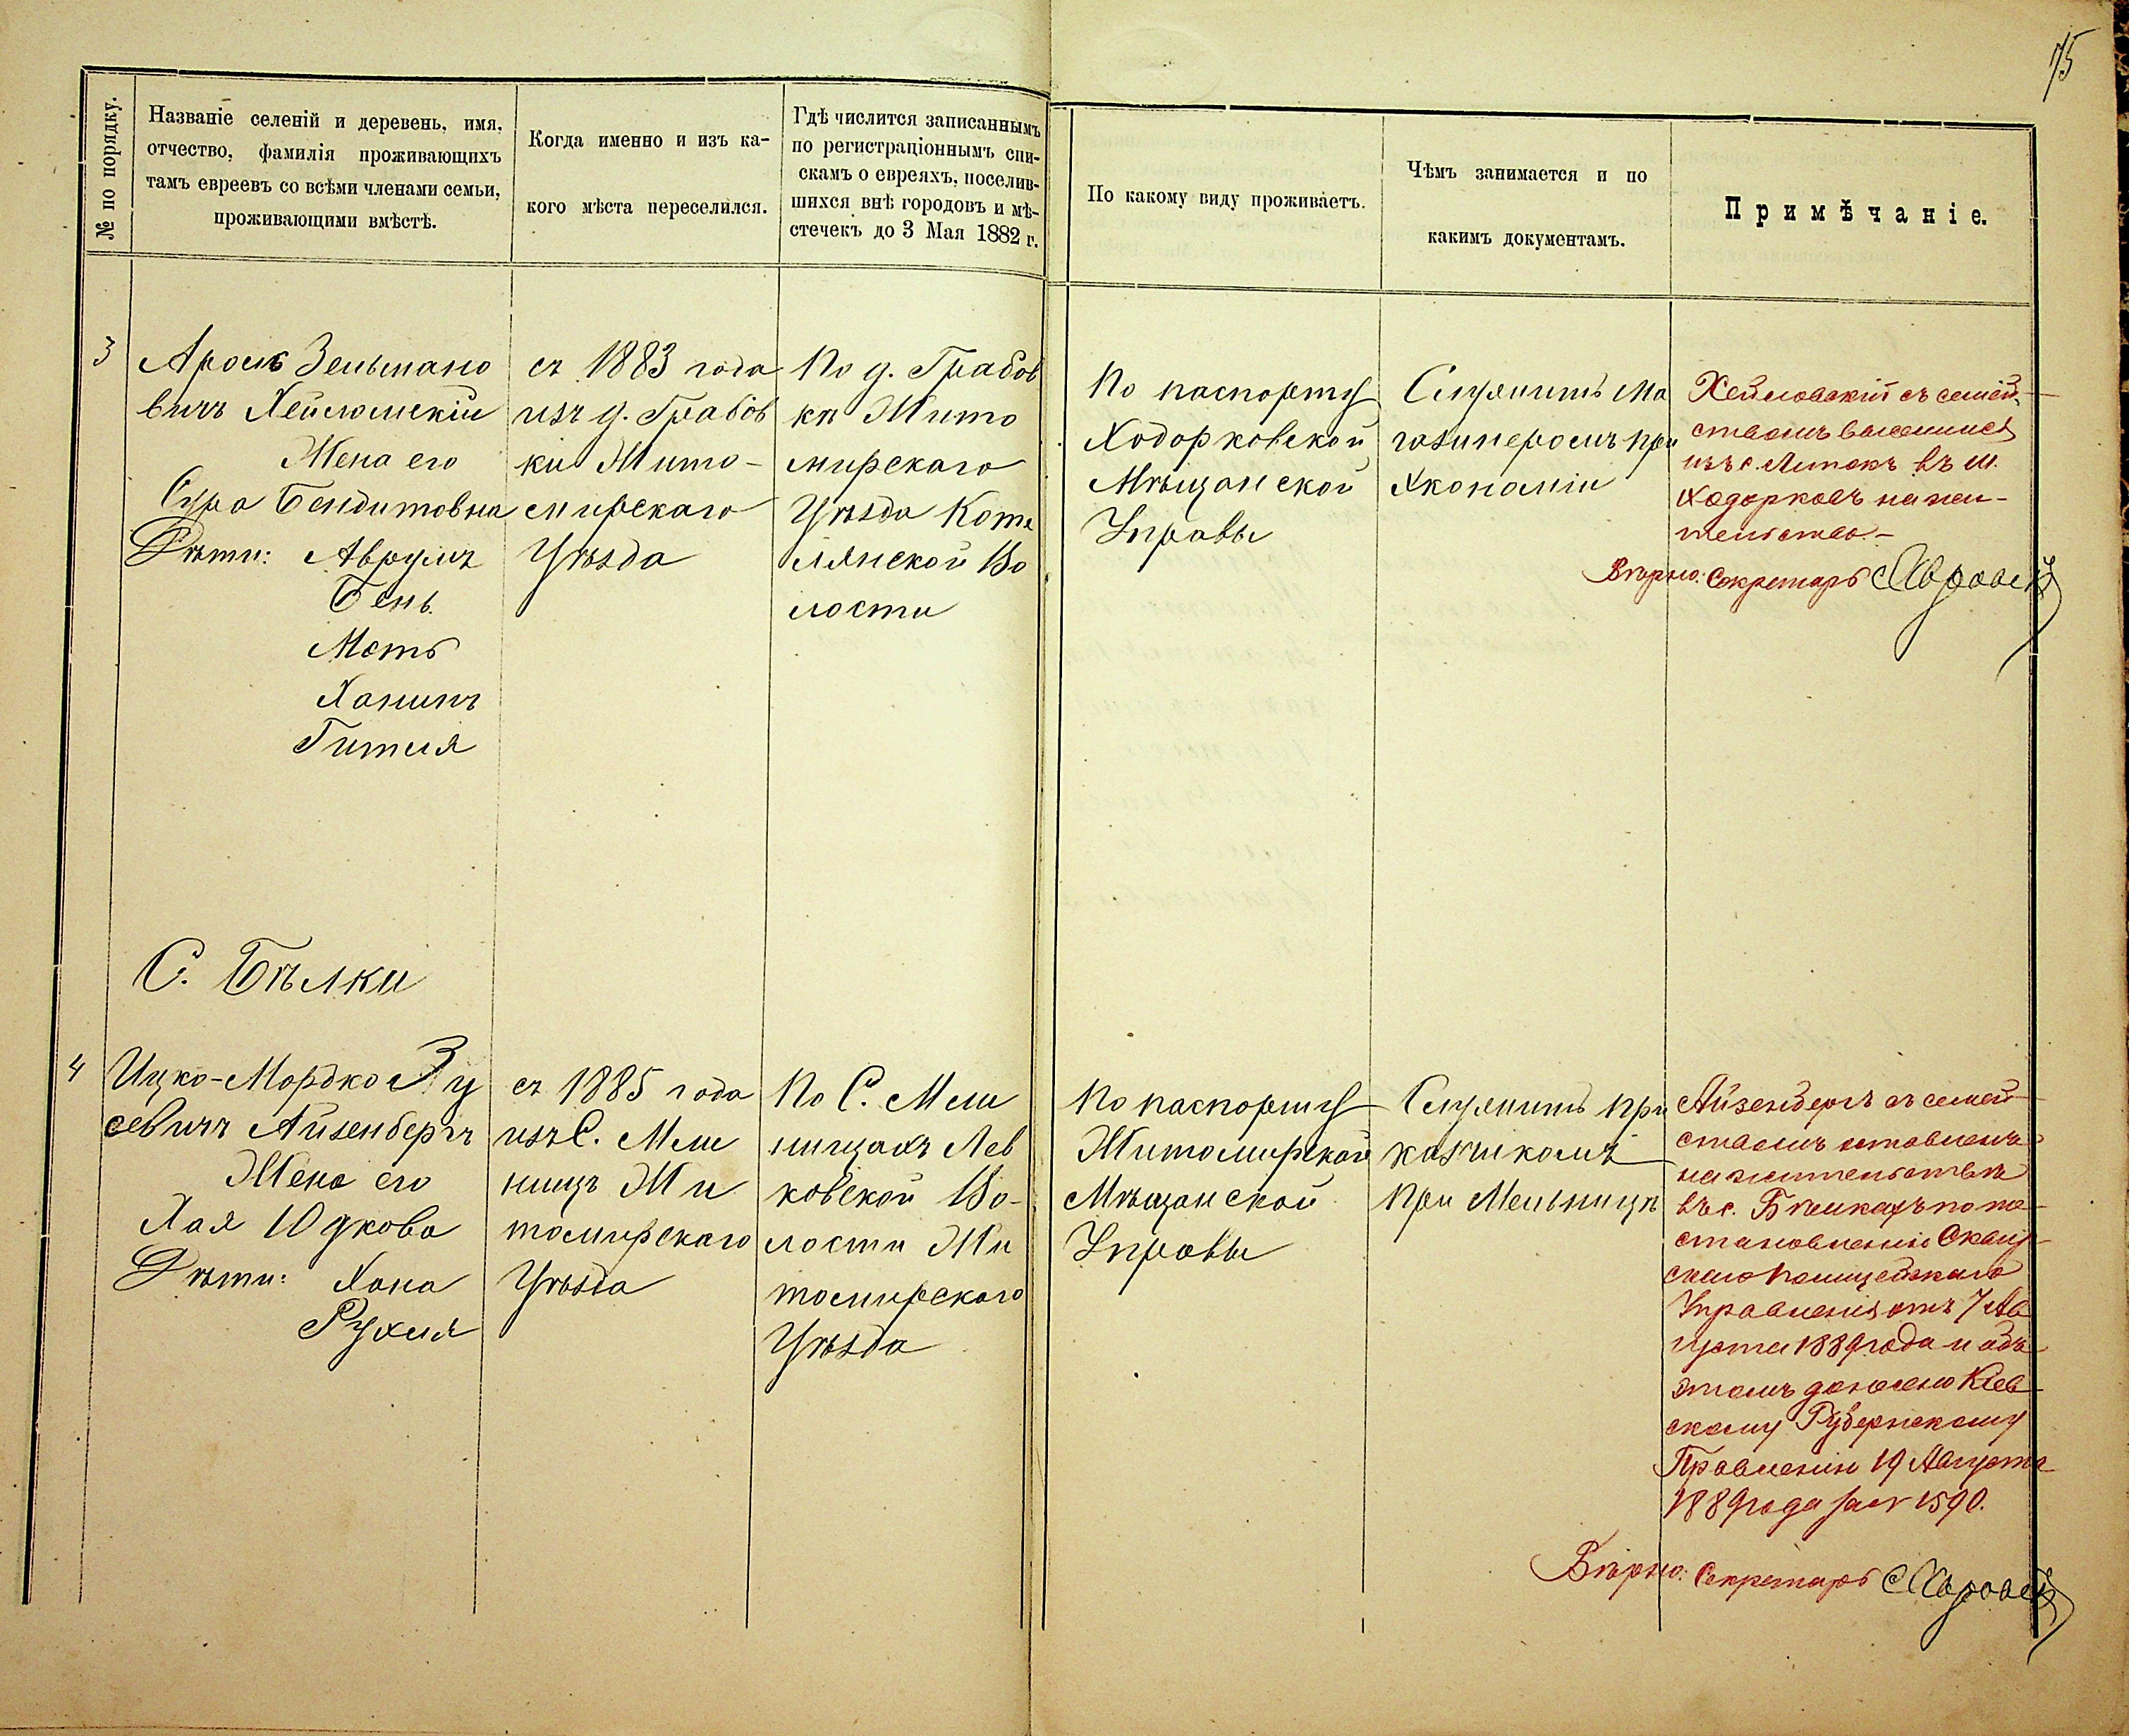 75
№ по порядку.
Названіе селеній и деревень, имя,
отчество, фамилія проживающихъ
тамъ евреевъ со всѣми членами семьи,
проживающими вмѣстѣ.
Когда именно и изъ ка-
кого мѣста переселился.
Гдѣ числится записаннымъ
по регистраціоннымъ спи-
скамъ о евреяхъ, поселив-
шихся внѣ городовъ и мѣ-
стечекъ до 3 Мая 1882 г.
По какому виду проживаетъ.
Чѣмъ занимается и по
какимъ документамъ.
Примѣчаніе.
3
Аронъ Зельмано
вичъ
Жена его
Сура Бендитовна
Дѣти: Аврумъ
Бень
Моть
Ханинъ
Гитля
съ 1883 года
изъ д. Грабов
ки Жито-
мирскаго
Уѣзда
По д. Грабов
кѣ Жито
мирскаго
Уѣзда Коте
лянской Во
лости
По паспорту
Ходорковской
Мѣщанской
Управы
Служитъ Ма
газинеромъ при
Экономіи
Хейловскій съ семей-
ствомъ выселился
изъ с. въ м.
Ходорковъ на жи-
тельство.-
Вѣрно: Секретарь
С. Бѣлки
4
Ицко-Мордко Зу
севичъ Айзенбергъ
Жена его
Хая Юдкова
Дѣти: Хана
Рухля
съ 1885 года
изъ С. Мли
ницъ Жи
томирскаго
Уѣзда
По С. Мли
ницахъ Лев
ковской Во-
лости Жи
томирскаго
Уѣзда
По паспорту
Житомирской
Мѣщанской
Управы
Служитъ При
казчикомъ
при Мельницѣ
Айзенбергъ съ семей-
ствомъ оставленъ
на жительствѣ
въ с. Бѣлкахъ по по-
становленію Сквир-
скаго Полицейскаго
Управленія отъ 7 Ав
густа 1889 года и объ
этомъ донесено Кіев-
скому Губернскому
Правленію 19 Августа
1889 года за № 1590.
Вѣрно: Секретарь